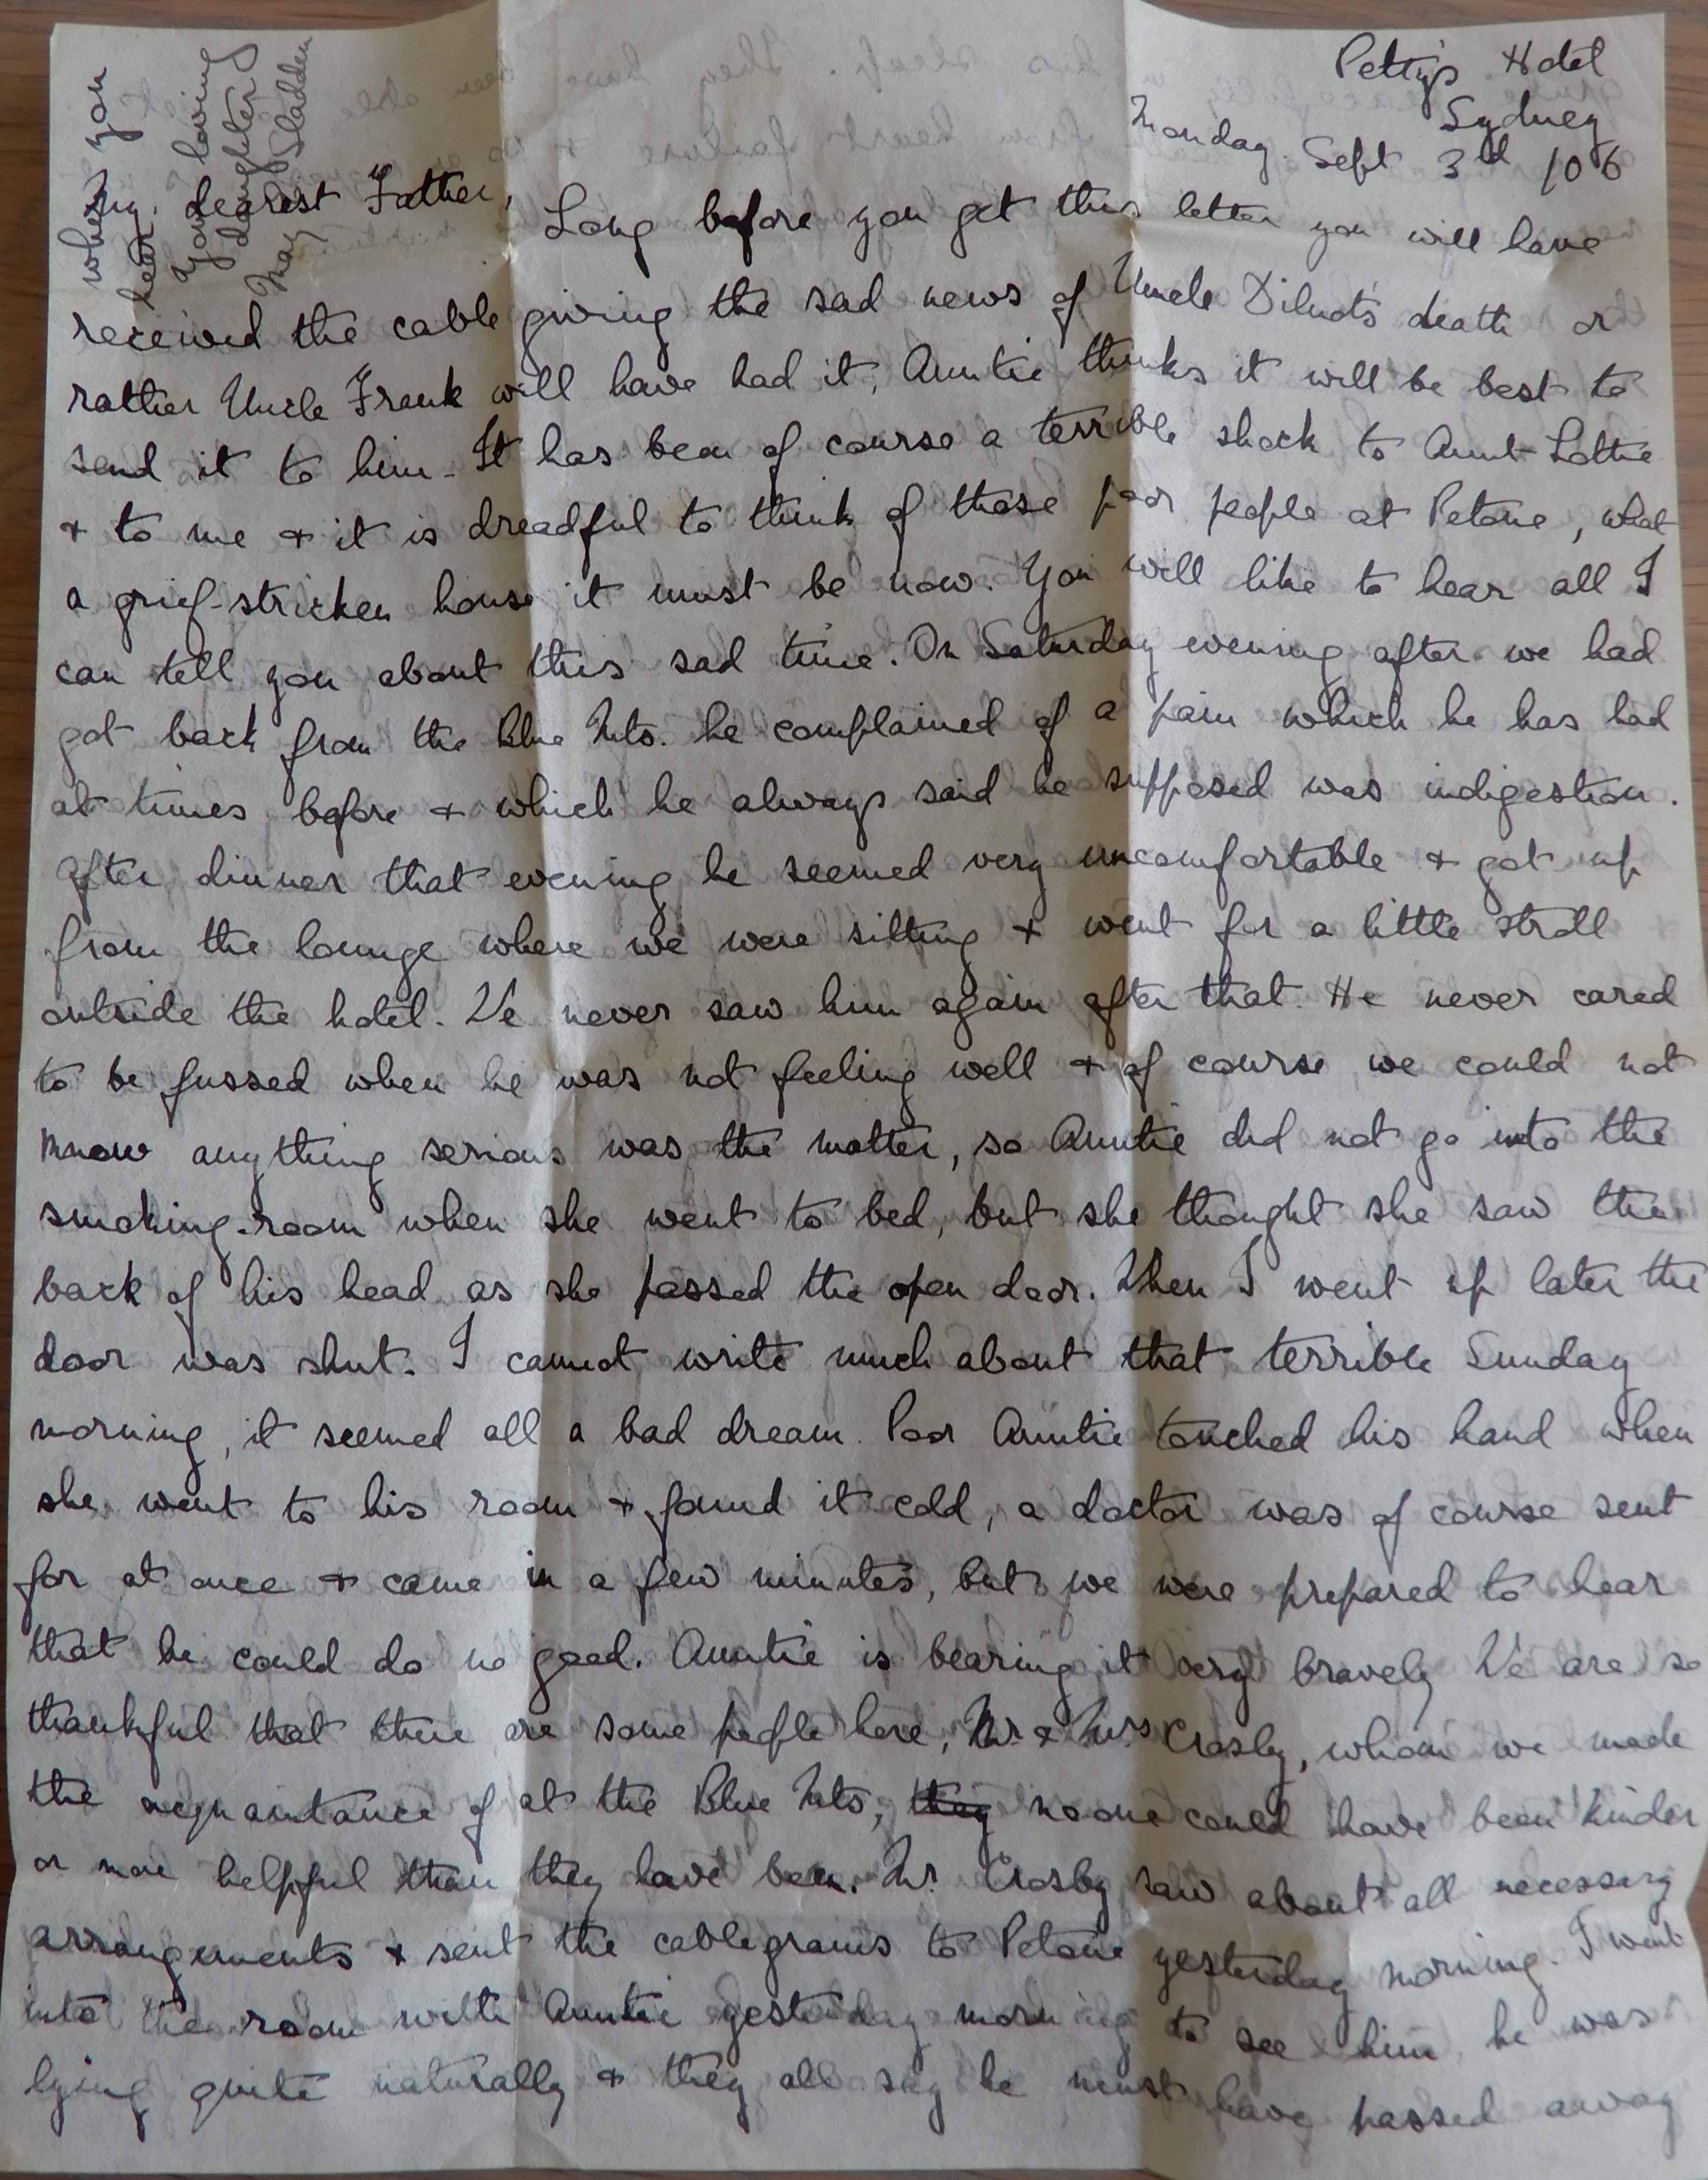 Petty's Hotel
Sydney
Monday. Sept 3rd /06
My dearest Father,
Long before you get this letter you will have
received the cable giving the sad news of Uncle Dilnot's death or
rather Uncle Frank will have had it, Auntie thinks it will be best to
send it to him - It has been of course a terrible shock to Aunt Lottie
& to me & it is dreadful to think of those poor people at Petone, what
a grief-stricken house it must be now. You will like to hear all I
can tell you about this sad time. On Saturday evening after we had
got back from the Blue Mts. he complained of a pain which he has had
at times before & which he always said he supposed was indigestion.
After dinner that evening he seemed very uncomfortable & got up
from the lounge where we were sitting & went for a little stroll
outside the hotel. We never saw him again after that. He never cared
to be fussed when he was not feeling well & of course we could not
know anything serious was the matter, so Auntie did not go into the
smoking-room when she went to bed, but she thought she saw the
back of his head as she passed the open door. When I went up later the
door was shut. I cannot write much about that terrible Sunday
morning, it seemed all a bad dream. Poor Auntie touched his hand when
she went to his room & found it cold, a doctor was of course sent
for at once & came in a few minutes, but we were prepared to hear
that he could do no good. Auntie is bearing it very bravely We are so
thankful that there are some people here, Mr. & Mrs Crosby, whom we made
the acquaintance of at the Blue Mts, they no one could have been kinder
or more helpful than they have been. Mr. Crosby saw about all necessary
arrangements & sent the cablegrams to Petone yesterday morning. I went
into the room with Auntie yesterday morning to see him, he was
lying quite naturally & they all say he must have passed away
when you
hear
Your loving
daughter
May Sladden